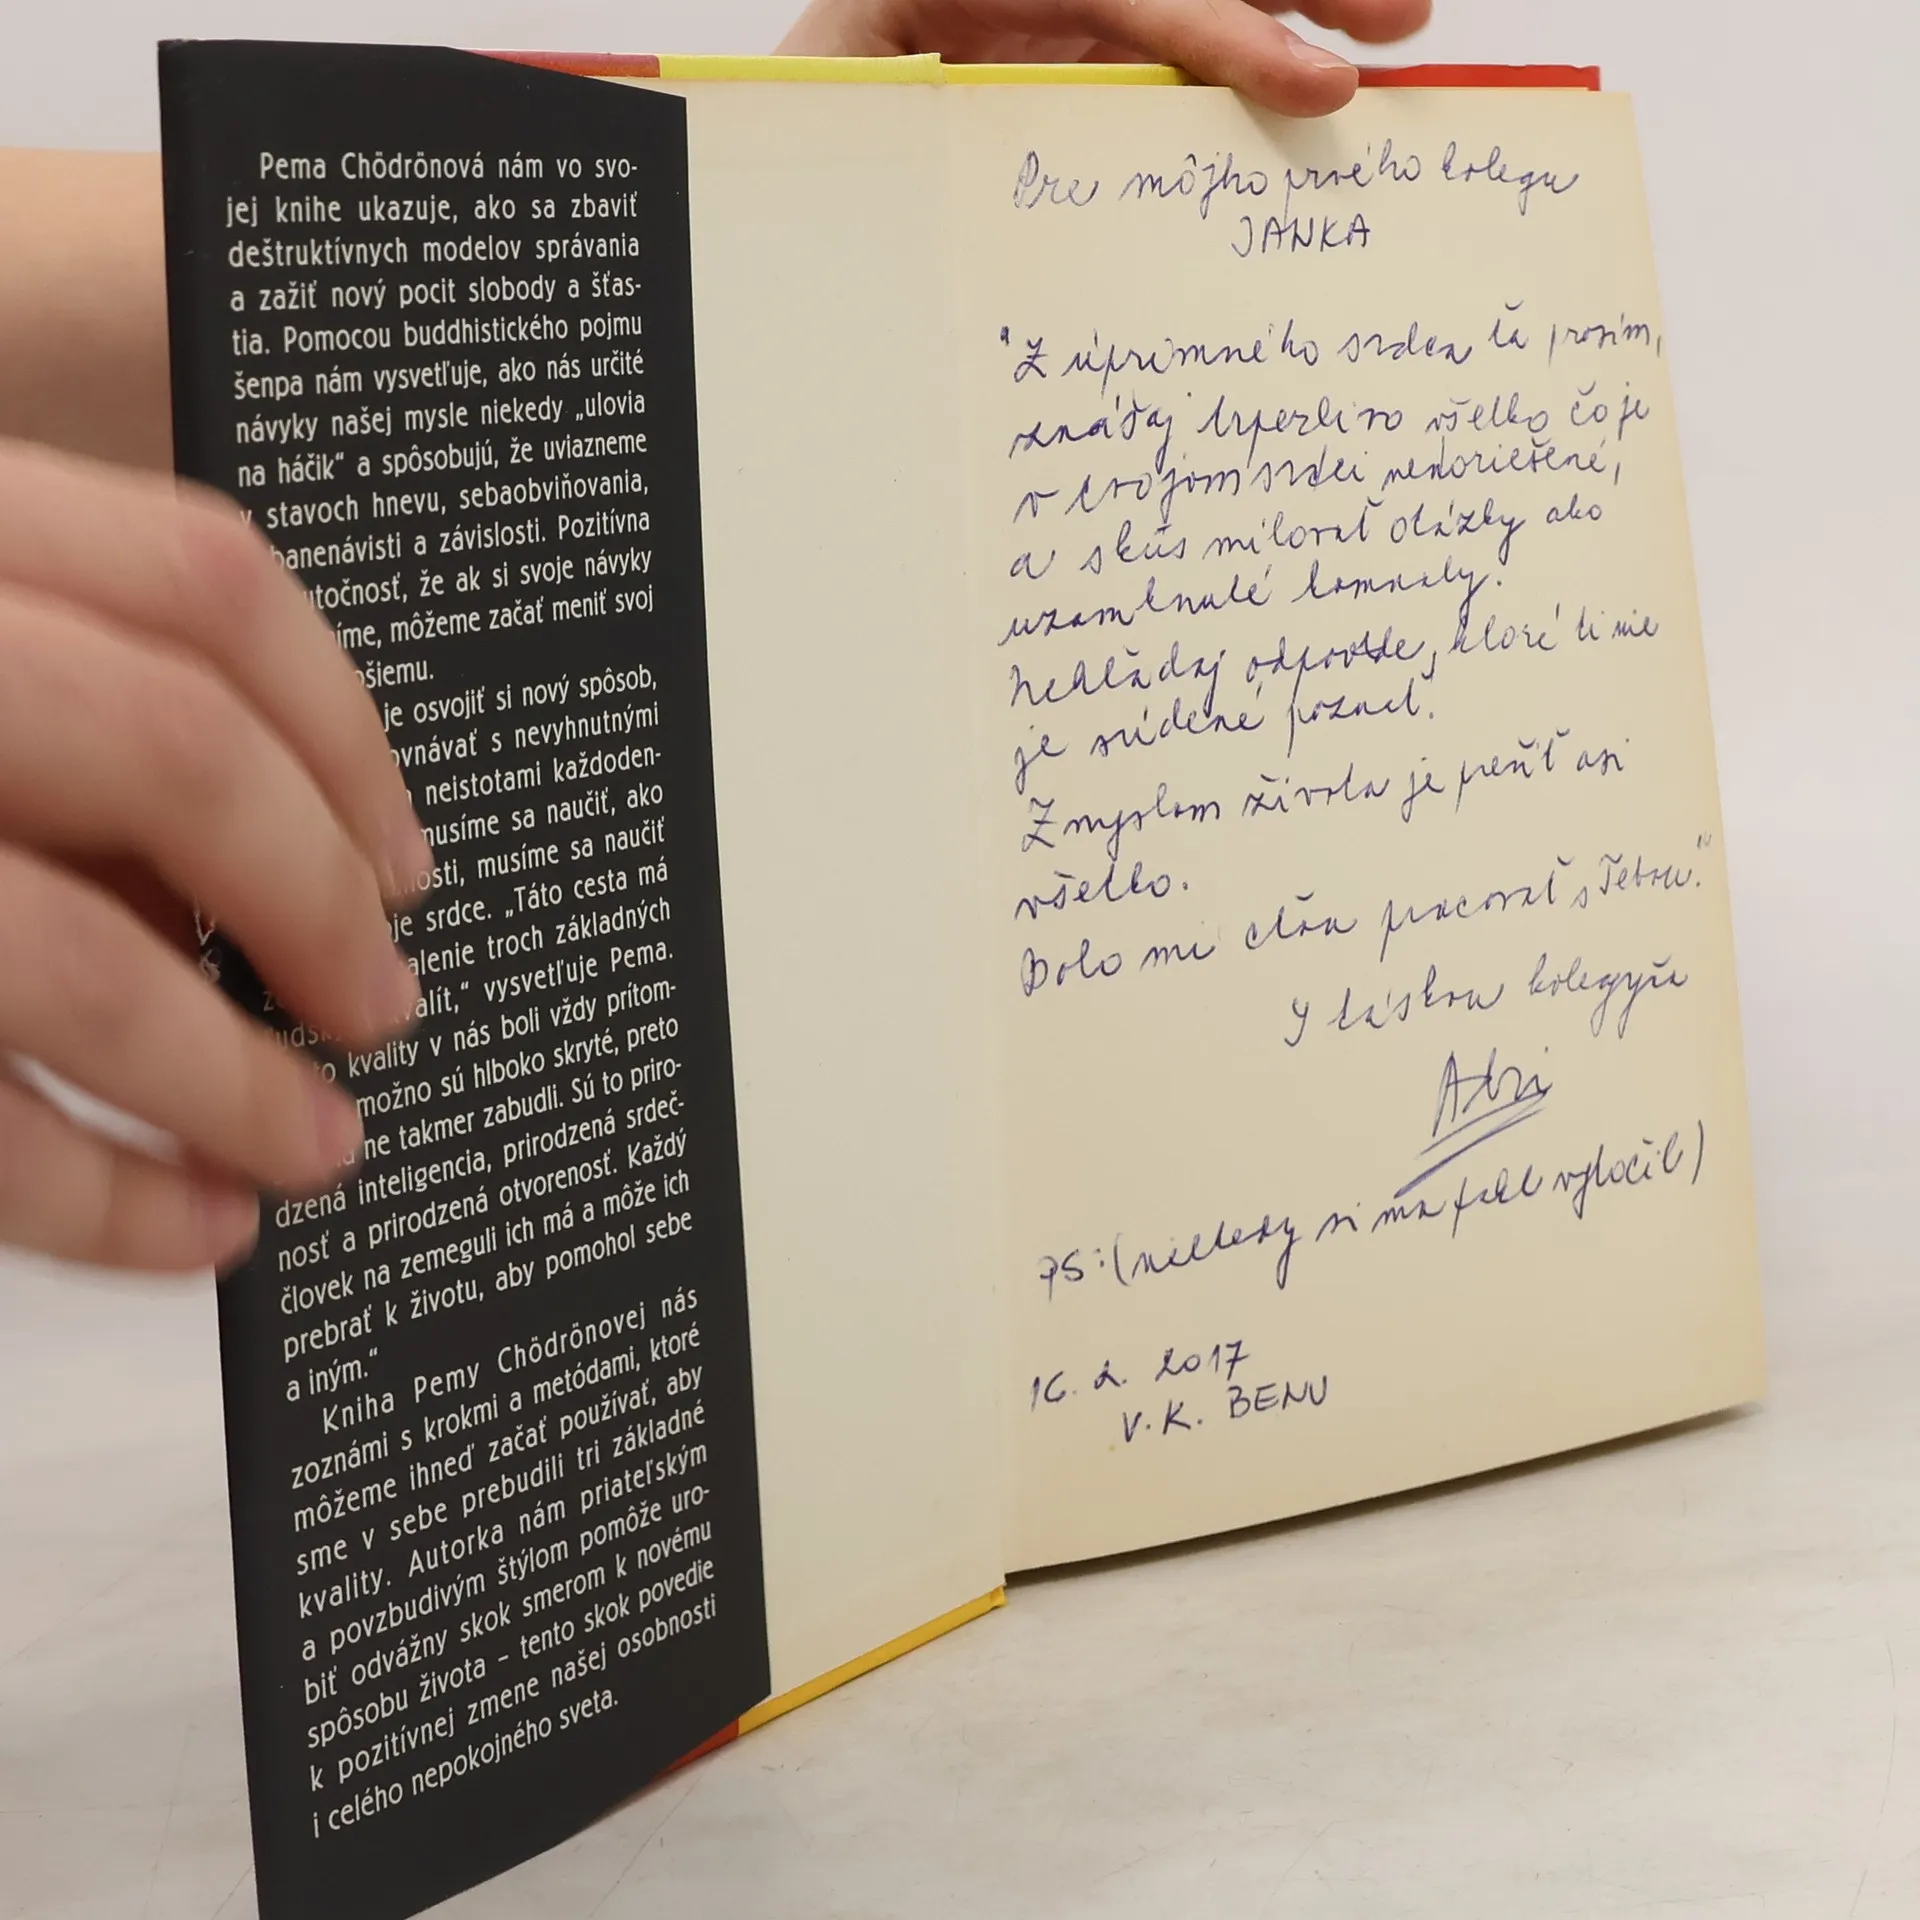 Pema Chödrönová nám vo svo-
jej knihe ukazuje, ako sa zbaviť
deštruktívnych modelov správania
a zažiť nový pocit slobody a šťas-
tia. Pomocou buddhistického pojmu
šenpa nám vysvetľuje, ako nás určité
návyky našej mysle niekedy „ulovia
na háčik“ a spôsobujú, že uviazneme
v stavoch hnevu, sebaobviňovania,
banenávisti a závislosti. Pozitívna
utočnosť, že ak si svoje návyky
íme, môžeme začať meniť svoj
ošiemu.
je osvojiť si nový spôsob,
ovnávať s nevyhnutnými
neistotami každoden-
musíme sa naučiť, ako
osti, musíme sa naučiť
je srdce. „Táto cesta má
alenie troch základných
alít,“ vysvetľuje Pema.
to kvality v nás boli vždy prítom-
možno sú hlboko skryté, preto
ne takmer zabudli. Sú to priro-
dzená inteligencia, prirodzená srdeč-
nosť a prirodzená otvorenosť. Každý
človek na zemeguli ich má a môže ich
prebrať k životu, aby pomohol sebe
a iným.“
Kniha Pemy Chödrönovej nás
zoznámi s krokmi a metódami, ktoré
môžeme ihneď začať používať, aby
sme v sebe prebudili tri základné
kvality. Autorka nám priateľským
a povzbudivým štýlom pomôže uro-
biť odvážny skok smerom k novému
spôsobu života – tento skok povedie
k pozitívnej zmene našej osobnosti
i celého nepokojného sveta.
Pre môjho prvého kolegu
JANKA
"Z úprimného srdca ťa prosím,
znášaj trpezlivo všetko čo je
v tvojom srdci nedoriešené,
a skús milovať otázky ako
uzamknuté komnaty.
Nehľadaj odpovede, ktoré ti nie
je súdené poznať.
Zmyslom života je prežiť asi
všetko.
Bolo mi cťou pracovať s Tebou."
S láskou kolegyňa
PS:(niekedy si ma fakt vytočil)
16. 2. 2017
V.K. BENU